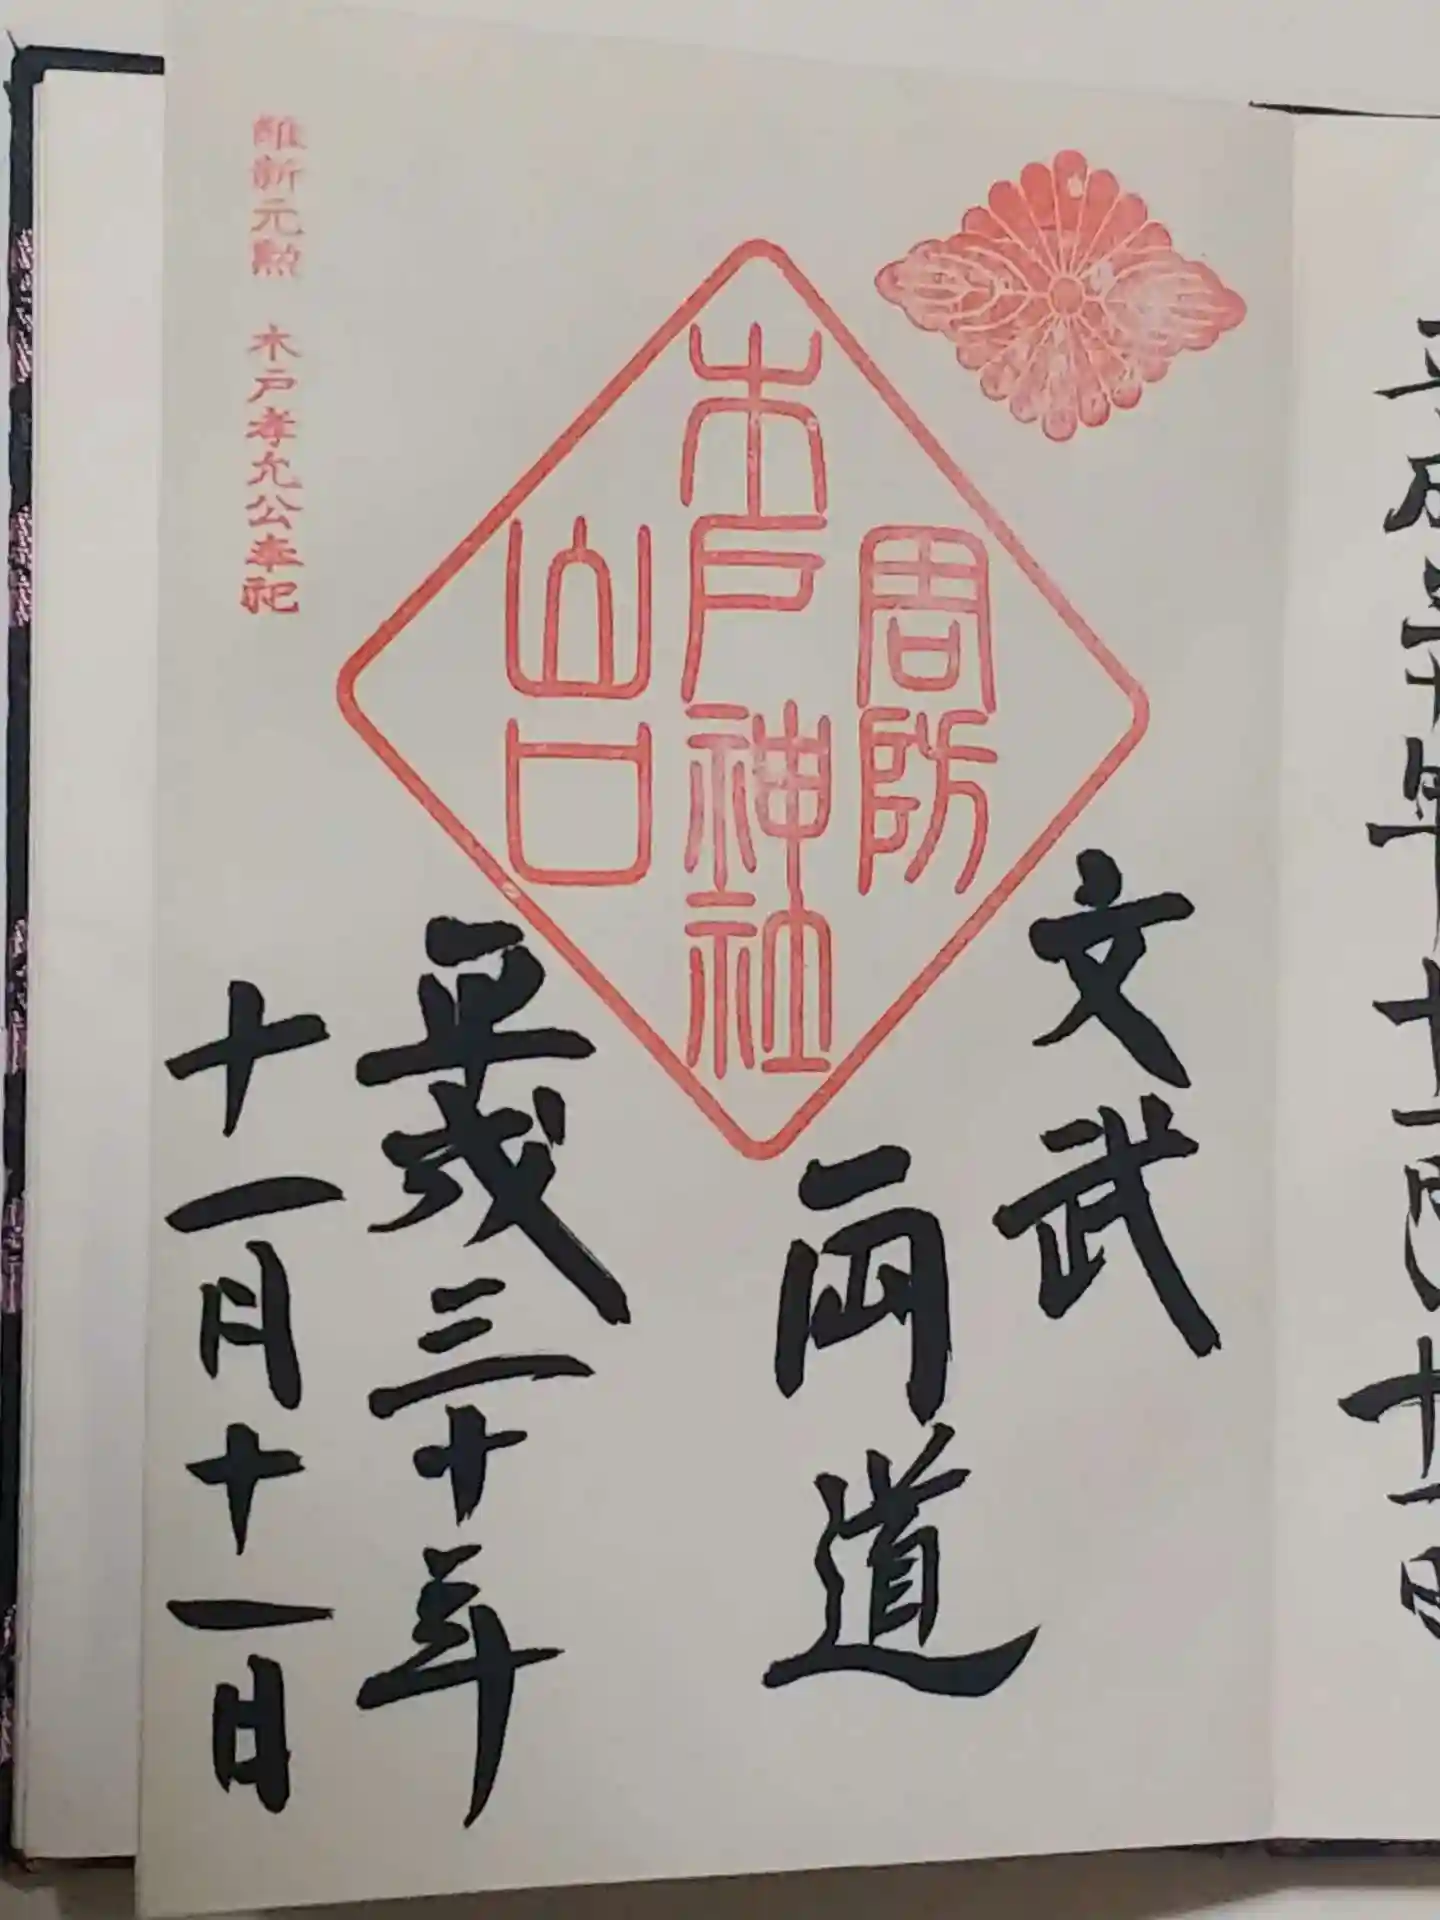 平成三十年十一月十一日
周防
木戸神社
山口
文武
両道
平成三十年
十一月十一日
維新元勲 木戸孝允公奉祀